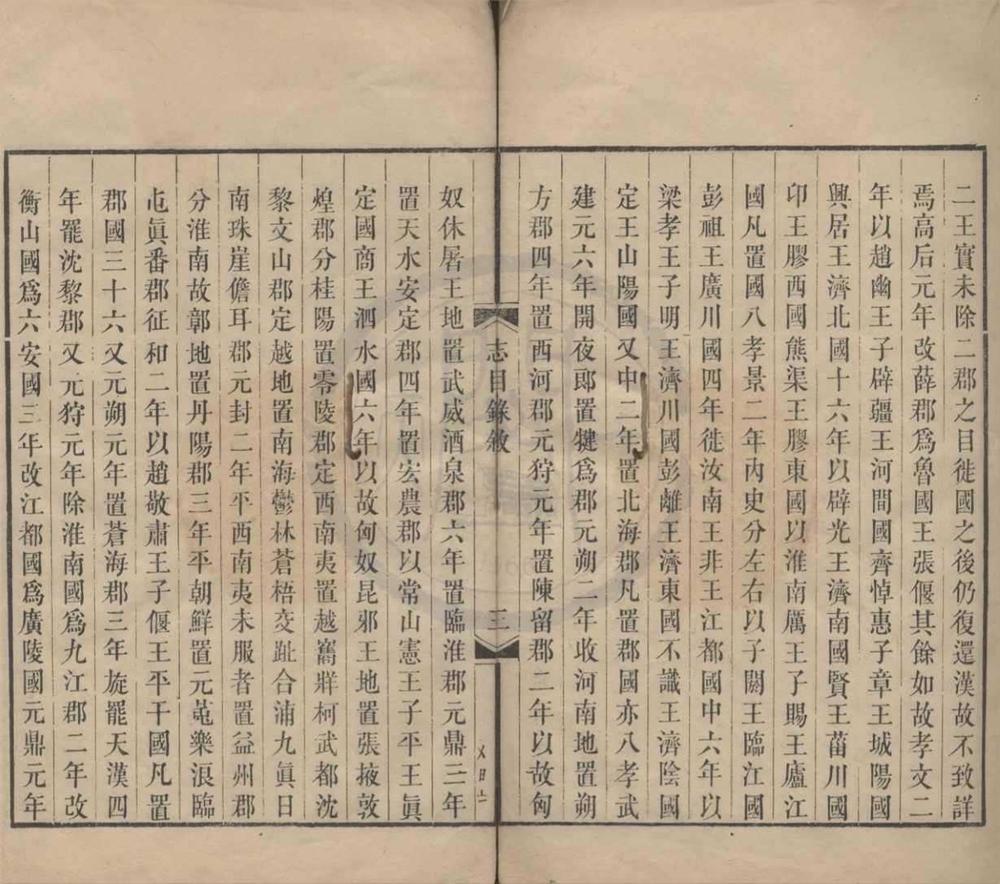 二王實未除二郡之目徙國之後仍復還漢故不致詳
焉高后元年改薛郡爲魯國王張偃其餘如故孝文二
年以趙幽王子辟疆王河間國齊悼惠子章王城陽國
興居王濟北國十六年以辟光王濟南國賢王菑川國
卭王膠西國熊渠王膠東國以淮南厲王子賜王廬江
國凡置國八孝景二年內史分左右以子閼王臨江國
彭祖王廣川國四年徙汝南王非王江都國中六年以
梁孝王子明王濟川國彭離王濟東國不識王濟陰國
定王山陽國又中二年置北海郡凡置郡國亦八孝武
建元六年開夜郎置犍爲郡元朔二年收河南地置朔
方郡四年置西河郡元狩元年置陳留郡二年以故匈
志目錄敘
三
奴休屠王地置武威酒泉郡六年置臨淮郡元鼎三年
置天水安定郡四年置宏農郡以常山憲王子平王眞
定國商王泗水國六年以故匈奴昆邪王地置張掖敦
煌郡分桂陽置零陵郡定西南夷置越巂牂柯武都沈
黎文山郡定越地置南海鬱林蒼梧交趾合浦九眞日
南珠崖儋耳郡元封二年平西南夷未服者置益州郡
分淮南故鄣地置丹陽郡三年平朝鮮置元菟樂浪臨
屯眞番郡征和二年以趙敬肅王子偃王平干國凡置
郡國三十六又元朔元年置蒼海郡三年旋罷天漢四
年罷沈黎郡又元狩元年除淮南國爲九江郡二年改
衡山國爲六安國三年改江都國爲廣陵國元鼎元年